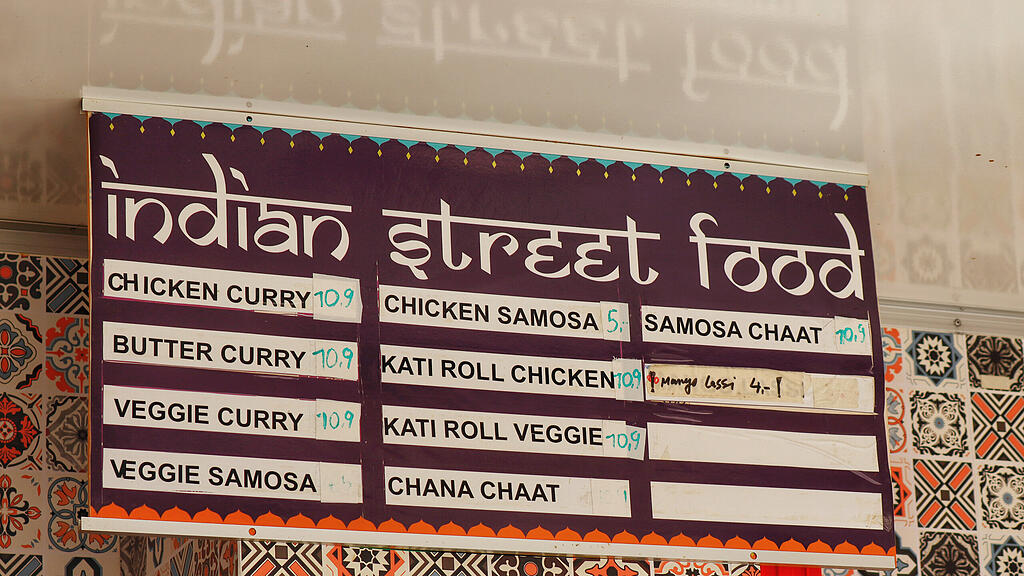 indian street food
CHICKEN CURRY 10,9
BUTTER CURRY 10,9
VEGGIE CURRY 10,9
VEGGIE SAMOSA
CHICKEN SAMOSA 5,-
KATI ROLL CHICKEN 10,9
KATI ROLL VEGGIE 10,9
CHANA CHAAT
SAMOSA CHAAT 10,9
! Mango Lassi 4,- !